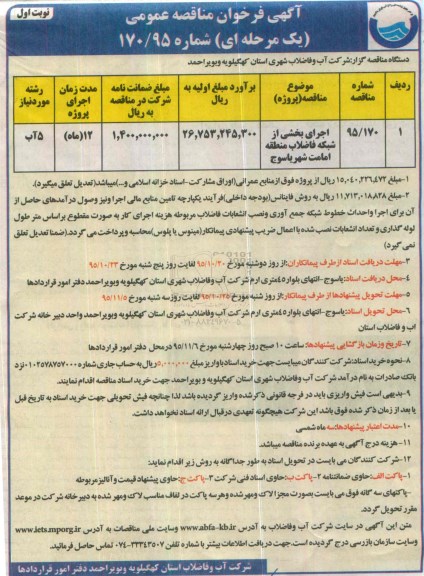 آگهی فرخوان مناقصه عمومی
نوبت اول
(یک مرحله ای) شماره ۱۷۰/۹۵
دستگاه مناقصه گزار: شرکت آب وفاضلاب شهری استان کهگیلویه وبویراحمد
ردیف | شماره مناقصه | موضوع مناقصه(پروژه) | برآورد مبلغ اولیه به ریال | مبلغ ضمانت نامه شرکت در مناقصه به ریال | مدت زمان اجرای پروژه | رشته موردنیاز
۱ | ۹۵/۱۷۰ | اجرای بخشی از شبکه فاضلاب منطقه امامت شهریاسوج | ۲۶,۷۵۳,۲۴۵,۳۰۰ | ۱,۴۰۰,۰۰۰,۰۰۰ | ۱۲(ماه) | ۵آب
۱-مبلغ ۱۵,۰۴۰,۲۲۶,۴۷۲ ریال از پروژه فوق ازمنابع عمرانی(اوراق مشارکت-اسناد خزانه اسلامی و...)میباشد(تعدیل تعلق میگیرد).
۲-مبلغ ۱۱,۷۱۳,۰۱۸,۸۲۸ ریال به روش فاینانس(بودجه داخلی)فرآیند یکپارچه تامین منابع مالی اجرا ونیز وصول درآمدهای حاصل از
آن برای اجرا واحداث خطوط شبکه جمع آوری ونصب انشعابات فاضلاب مربوطه هزینه اجرای کار به صورت مقطوع براساس متر طول
لوله گذاری و تعداد انشعابات نصب شده با اعمال ضریب پیشنهادی پیمانکار(مینوس یا پلوس)محاسبه وپرداخت می گردد.(ضمنا تعدیل تعلق
نمی گیرد)
۳-مهلت دریافت اسناد ازطرف پیمانکاران:از روز دوشنبه مورخ ۹۵/۱۰/۲۰ لغایت روز پنج شنبه مورخ ۹۵/۱۰/۲۳
۴-محل دریافت اسناد:یاسوج-انتهای بلوار۴۵متری ارم شرکت آب وفاضلاب شهری استان کهگیلویه وبویراحمد دفتر امور قراردادها
۵-مهلت تحویل پیشنهادها از طرف پیمانکار:از روز شنبه مورخ ۹۵/۱۰/۲۵ لغایت روزسه شنبه مورخ ۹۵/۱۱/۵
۶-محل تحویل اسناد:یاسوج-انتهای بلوار۴۵متری ارم شرکت آب وفاضلاب شهری استان کهگیلویه وبویراحمد واحد دبیر خانه شرکت
اب و فاضلاب استان
۷-تاریخ وزمان بازگشایی پیشنهادها: ساعت ۱۰ صبح روز چهارشنبه مورخ ۹۵/۱۱/۶ درمحل دفتر امور قراردادها
۸-نحوه خریداسناد:شرکت کنندگان میبایست جهت خریداسنادباواریز مبلغ ۵۰۰,۰۰۰ریال به حساب جاری شماره ۰۱۰۲۵۷۸۷۵۷۰۰۰نزد
بانک صادرات به نام درآمد شرکت آب وفاضلاب شهری استان کهگیلویه و بویراحمد جهت خرید اسناد مناقصه اقدام نمایند.
۹-بدیهی است فیش واریزی باید در فرجه قانونی ذکرشده واریز گردیده باشد لذا چنانچه فیش تحویلی جهت خرید اسناد به تاریخ قبل
یا بعد از زمان ذکر شده فوق باشد این شرکت هیچگونه تعهدی درقبال ارائه اسناد نخواهد داشت.
۱۰-مدت اعتبار پیشنهادها:سه ماه شمسی
۱۱-هزینه درج آگهی به عهده برنده مناقصه میباشد.
۱۲-شرکت کنندگان می بایست در تحویل اسناد به طور جداگانه به روش زیر اقدام نمایند:
۱-پاکت الف:حاوی ضمانتنامه ۲-پاکت ب:حاوی اسناد فنی شرکت ۳-پاکت ج:حاوی پیشنهاد قیمت وآنالیزمربوطه
-پاکتهای سه گانه فوق می بایست بصورت مجزا لاک ومهرشده وهرسه پاکت در لفاف مناسب لاک ومهر شده به دبیرخانه شرکت در موعد
مقرر تحویل گردد.
متن این آگهی در سایت شرکت آب وفاضلاب به آدرس www.abfa-kb.ir وسایت ملی مناقصات به آدرس www.iets.mporg.ir
وسایت سازمان بازرسی درج گردیده است.جهت دریافت اطلاعات بیشتر با شماره تلفن ۳۳۳۴۳۵۰۷-۰۷۴ تماس حاصل فرمائید.
شرکت آب وفاضلاب استان کهگیلویه وبویراحمد دفتر امور قراردادها